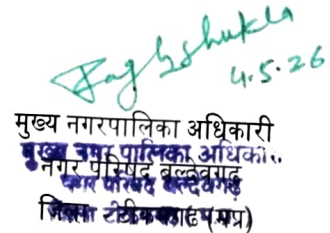 4.5.26
मुख्य नगरपालिका अधिकारी
मुख्य नगर पालिका अधिकारी
नगर परिषद बल्देवगढ़
नगर परिषद बल्देवगढ़
जिला टीकमगढ़ (म.प्र)